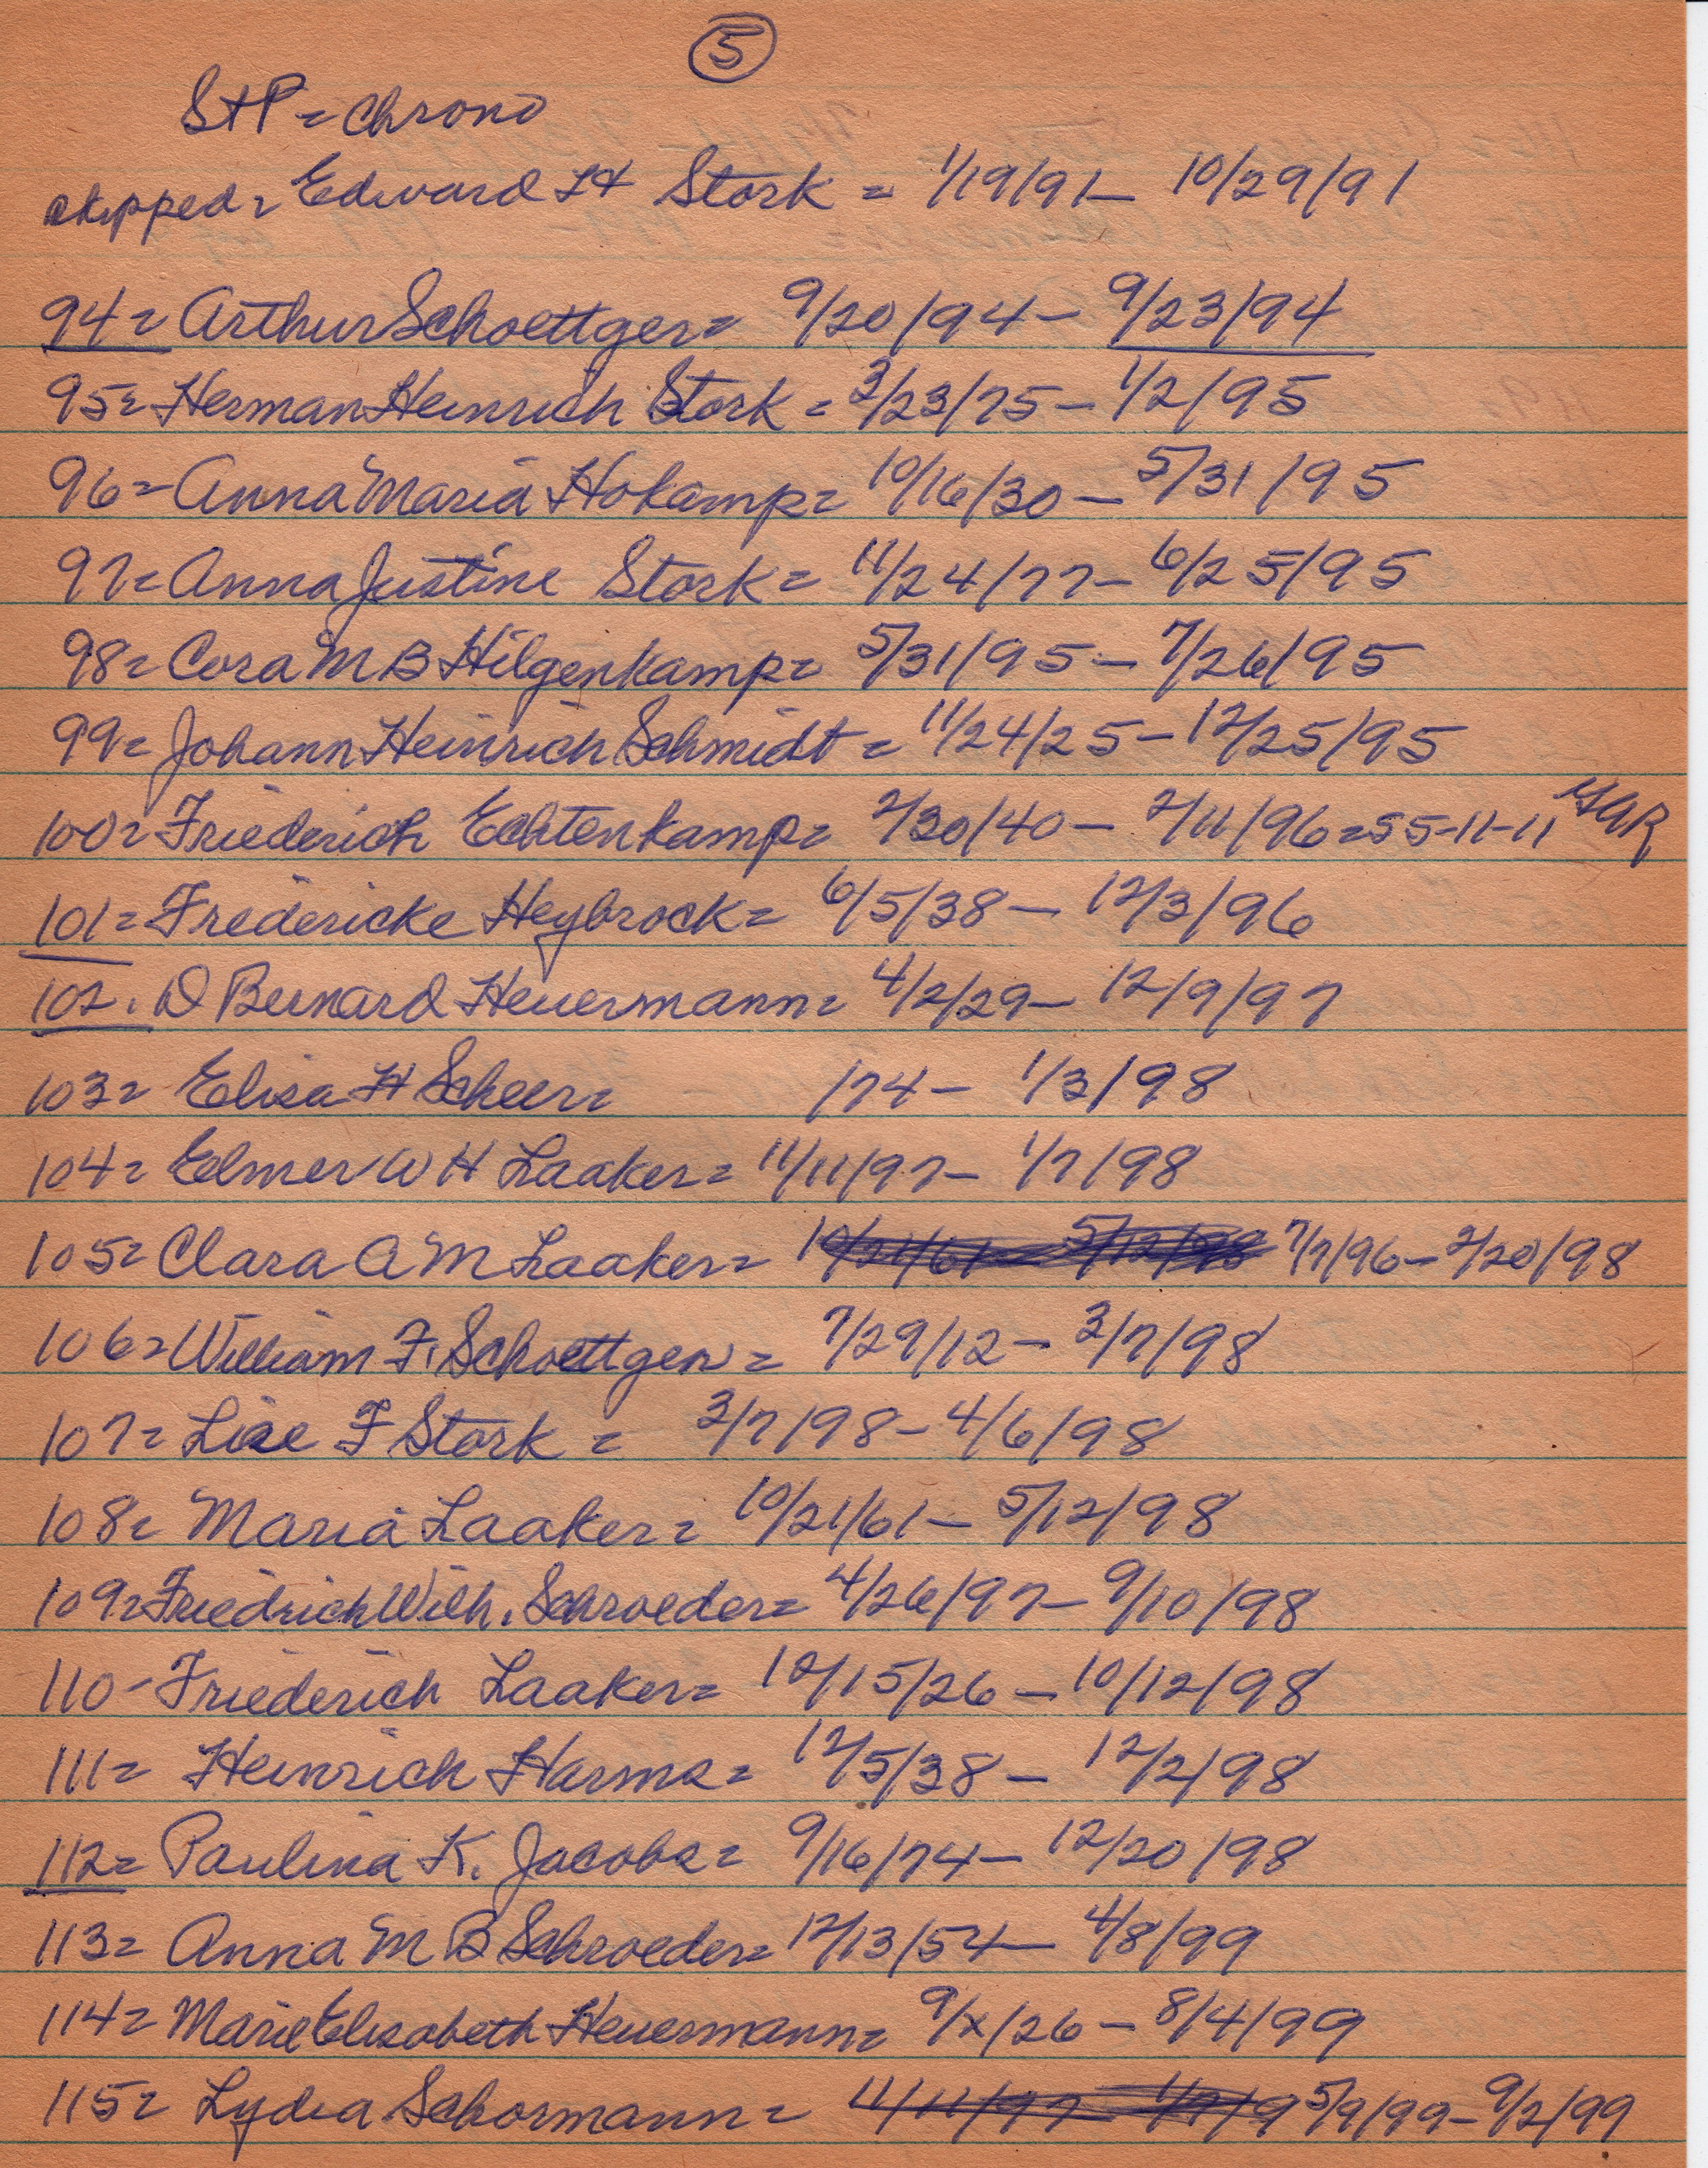 5
StP = Chrono
skipped = Edward H Stork = 1/19/91 – 10/29/91
94 = Arthur Schoettger = 9/20/94 – 9/23/94
95 = Herman Heinrich Stork = 3/23/75 – 1/2/95
96 = Anna Maria Hokamp = 10/16/30 – 5/31/95
97 = Anna Justine Stork = 11/24/77 – 6/25/95
98 = Cora M B Hilgenkamp = 5/31/95 – 7/26/95
99 = Johann Heinrich Schmidt = 11/24/25 – 12/25/95
100 = Friederich Echtenkamp = 2/30/40 – 2/11/96 = 55-11-11 GAR
101 = Fredericke Heybrock = 6/5/38 – 12/3/96
102. D Bernard Heuermann = 4/2/29 – 12/9/97
103 = Elisa H Scheer = /74 – 1/3/98
104 = Elmer W H Laaker = 11/11/97 – 1/7/98
105 = Clara A M Laaker = 10/21/61 – 5/12/98 7/7/96 – 2/20/98
106 = William F. Schoettger = 7/29/12 – 3/7/98
107 = Lise F Stork = 3/7/98 – 4/6/98
108 = Maria Laaker = 10/21/61 – 5/12/98
109 = Friedrich Wilh. Schroeder = 4/26/97 – 9/10/98
110 – Friederich Laaker = 12/15/26 – 10/12/98
111 = Heinrich Harms = 12/5/38 – 12/2/98
112 = Paulina K. Jacobs = 9/16/74 – 12/20/98
113 = Anna M B Schroeder = 12/13/54 – 4/8/99
114 = Marie Elisabeth Heuermann = 9/x/26 – 8/4/99
115 = Lydia Schormann = 11/11/97 – 1/7/9 5/9/99 – 9/2/99